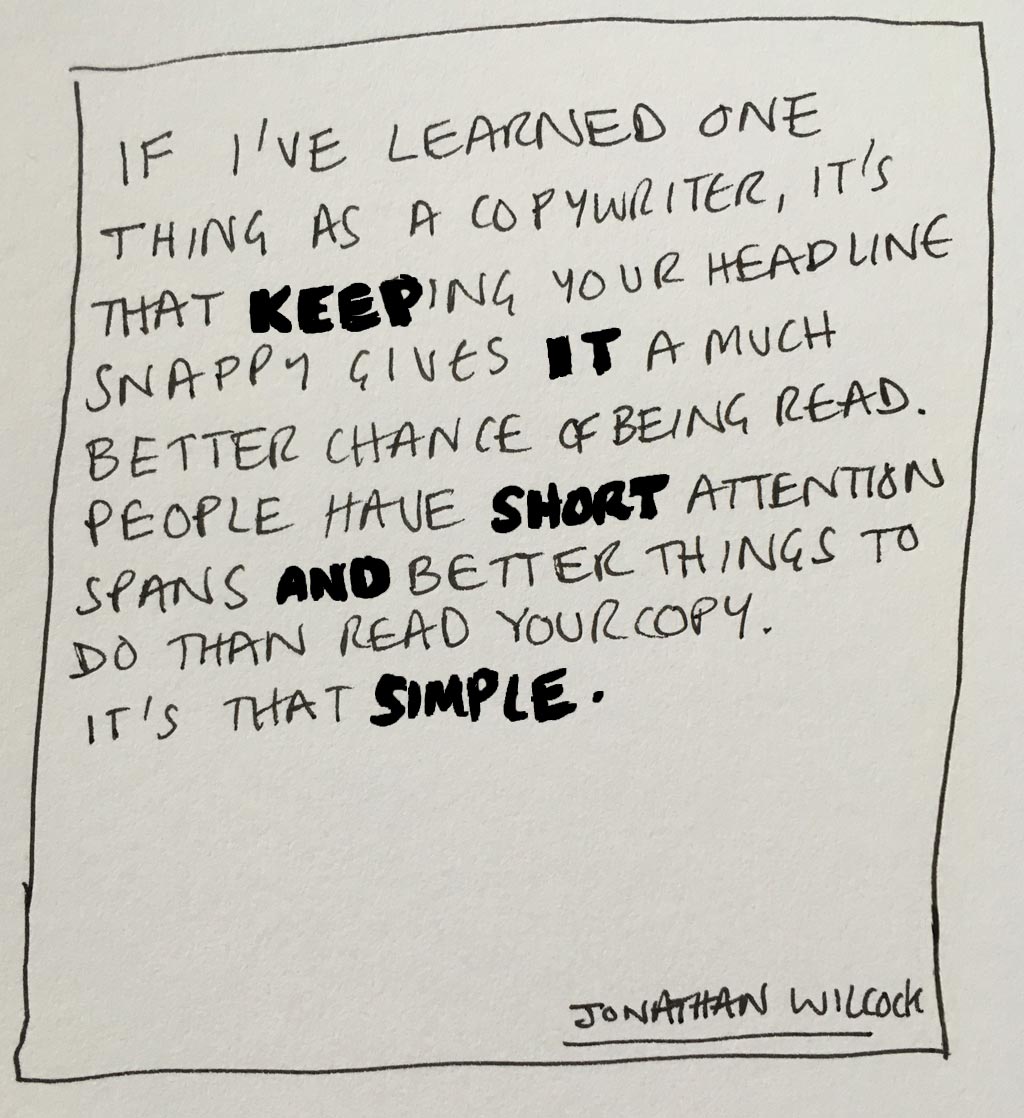 IF I'VE LEARNED ONE
THING AS A COPYWRITER, IT'S
THAT KEEPING YOUR HEADLINE
SNAPPY GIVES IT A MUCH
BETTER CHANCE OF BEING READ.
PEOPLE HAVE SHORT ATTENTION
SPANS AND BETTER THINGS TO
DO THAN READ YOUR COPY.
IT'S THAT SIMPLE.
JONATHAN WILCOCK